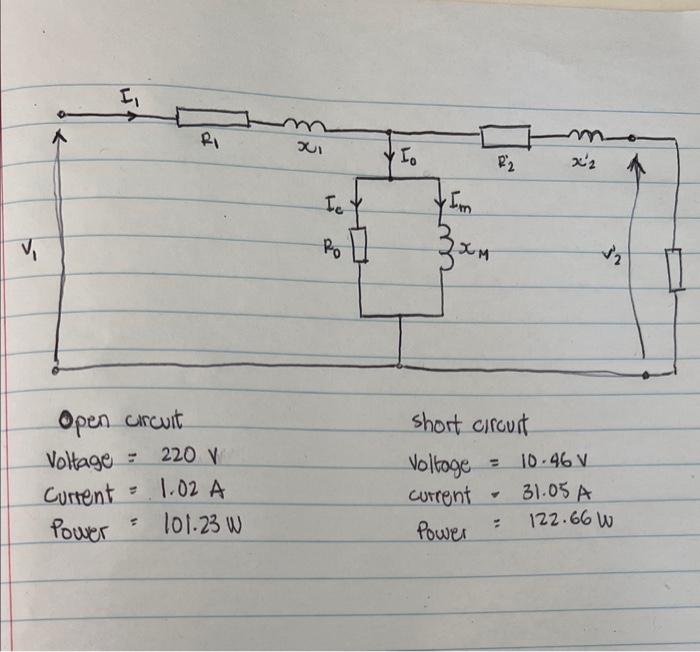 I₁
R₁
x₁
I₀
R'₂
x'₂
I_c
I_m
V₁
R₀
x_M
V'₂
Open circuit
Voltage = 220 V
Current = 1.02 A
Power = 101.23 W
Short circuit
Voltage = 10.46 V
current = 31.05 A
Power = 122.66 W